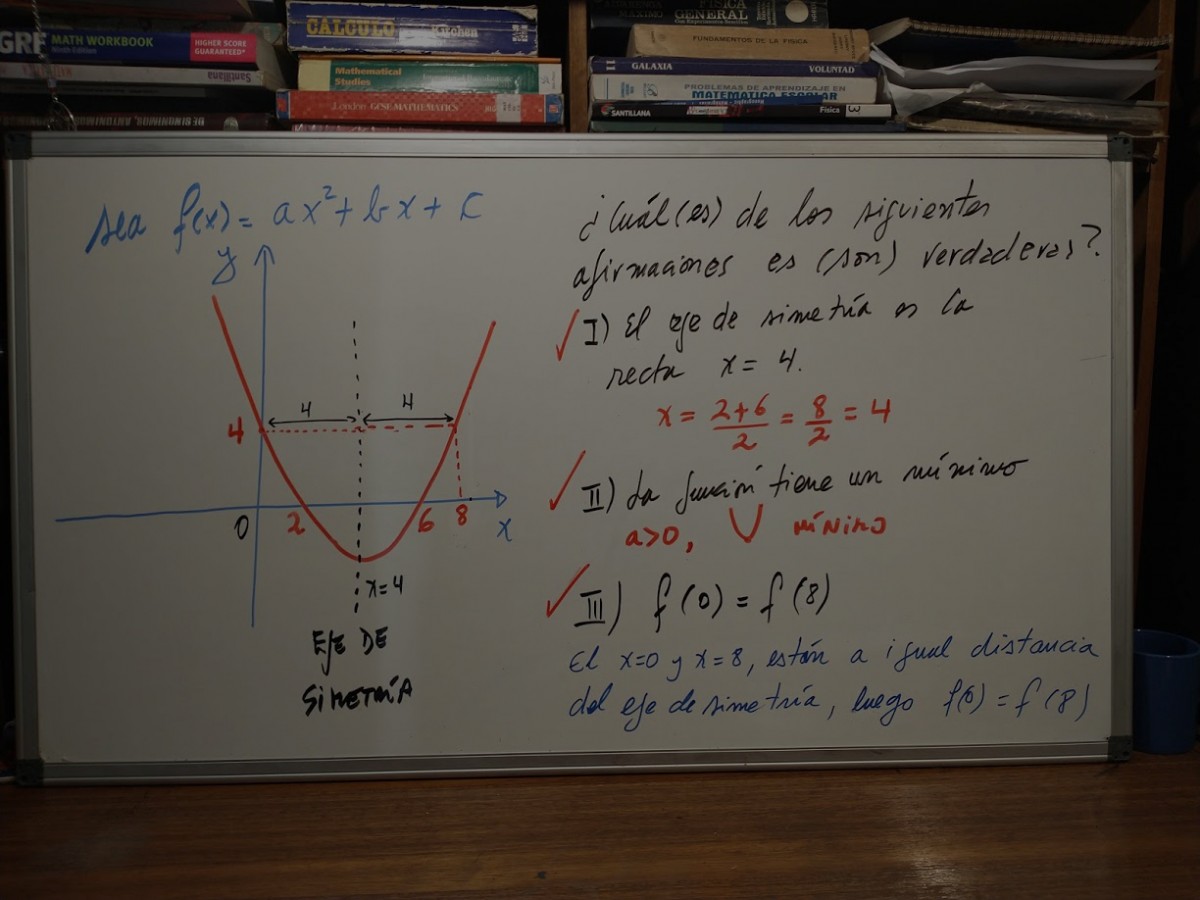 GRE MATH WORKBOOK
Ninth Edition
HIGHER SCORE
GUARANTEED*
Santillana
CALCULO
Kitchen
Mathematical
Studies
London GCSE MATHEMATICS
FISICA
GENERAL
MAXIMO
FUNDAMENTOS DE LA FISICA
II GALAXIA VOLUNTAD
PROBLEMAS DE APRENDIZAJE EN
MATEMATICA ESCOLAR
SANTILLANA Física 3
sea f(x) = ax²+bx+c
y
4 4
4
0 2 6 8 x
x=4
EJE DE
SIMETRÍA
¿Cuál(es) de los siguientes
afirmaciones es (son) verdaderas?
✓ I) El eje de simetría es la
recta x = 4.
x = 2+6/2 = 8/2 = 4
✓ II) La función tiene un mínimo
a>0, ∪ MÍNIMO
✓ III) f(0) = f(8)
El x=0 y x=8, están a igual distancia
del eje de simetría, luego f(0) = f(8)